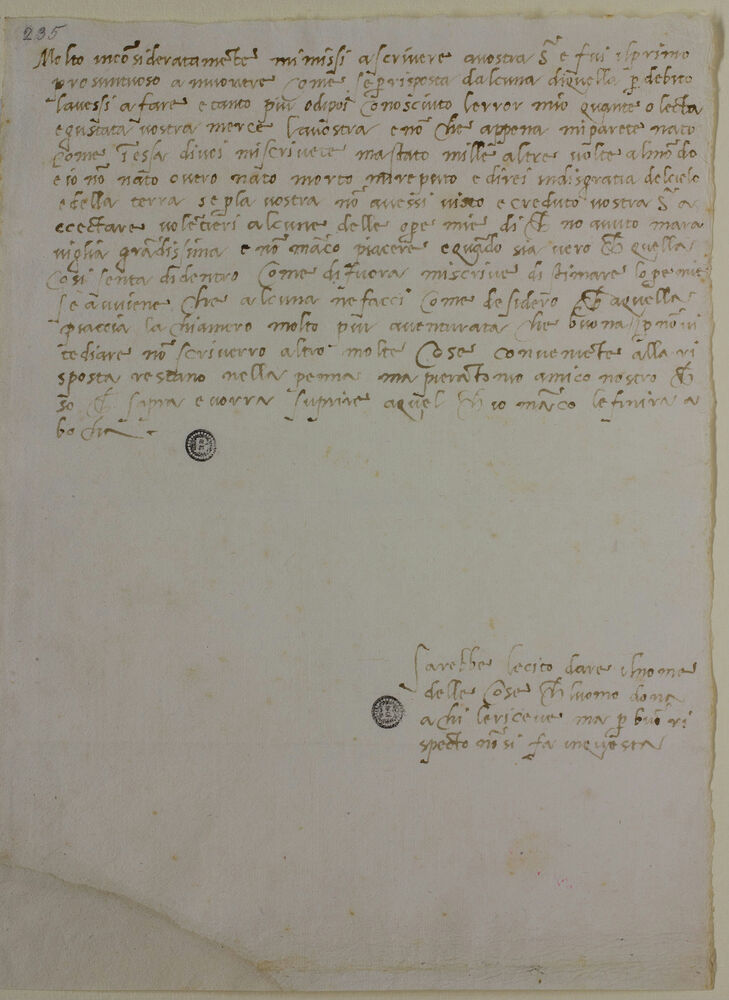 235
Molto inco̅sideratame̅te mi missi a scrivere a vostra S̅ e fui il primo
prosuntuoso a muovere come se p̲ risposta d alcuna di quella p̲ debito
l avessi a fare e tanto piu o dipoi conosciuto l error mio quante o lecta
e gustata vostra merce la vostra e no̅ che appena mi parete nato
come i̅ essa di voi mi scrivete ma stato mille altre volte al mo̅do
e io no̅ nato o vero nato morto mi reputo e direi in disgratia del cielo
e della terra se p̲ la vostra no̅ avessi visto e creduto vostra S̅ a
ccectare volentieri alcune delle ope mie di ch no avuto mara
viglia gra̅dissima e no̅ ma̅co piacere e qua̅do sia vero ch quella
cosi senta di dentro come di fuora mi scrive di stimare l ope mie
se avviene che alcuna ne facci come desidero ch a quella
piaccia la chiamero molto piu aventurata che buona p̲ no̅ vi
tediare no̅ scriverro altro molte cose conveniente alla ri
sposta restano nella penna ma pierantonio amico nostro ch
so ch sapra e vorra suprire a quel ch io ma̅co le finira a
bocha
Sarebbe lecito dare il nome
delle cose ch l uomo dona
a chi le riceve ma p̲ buo̅ ri
specto no̅ si fa in questa